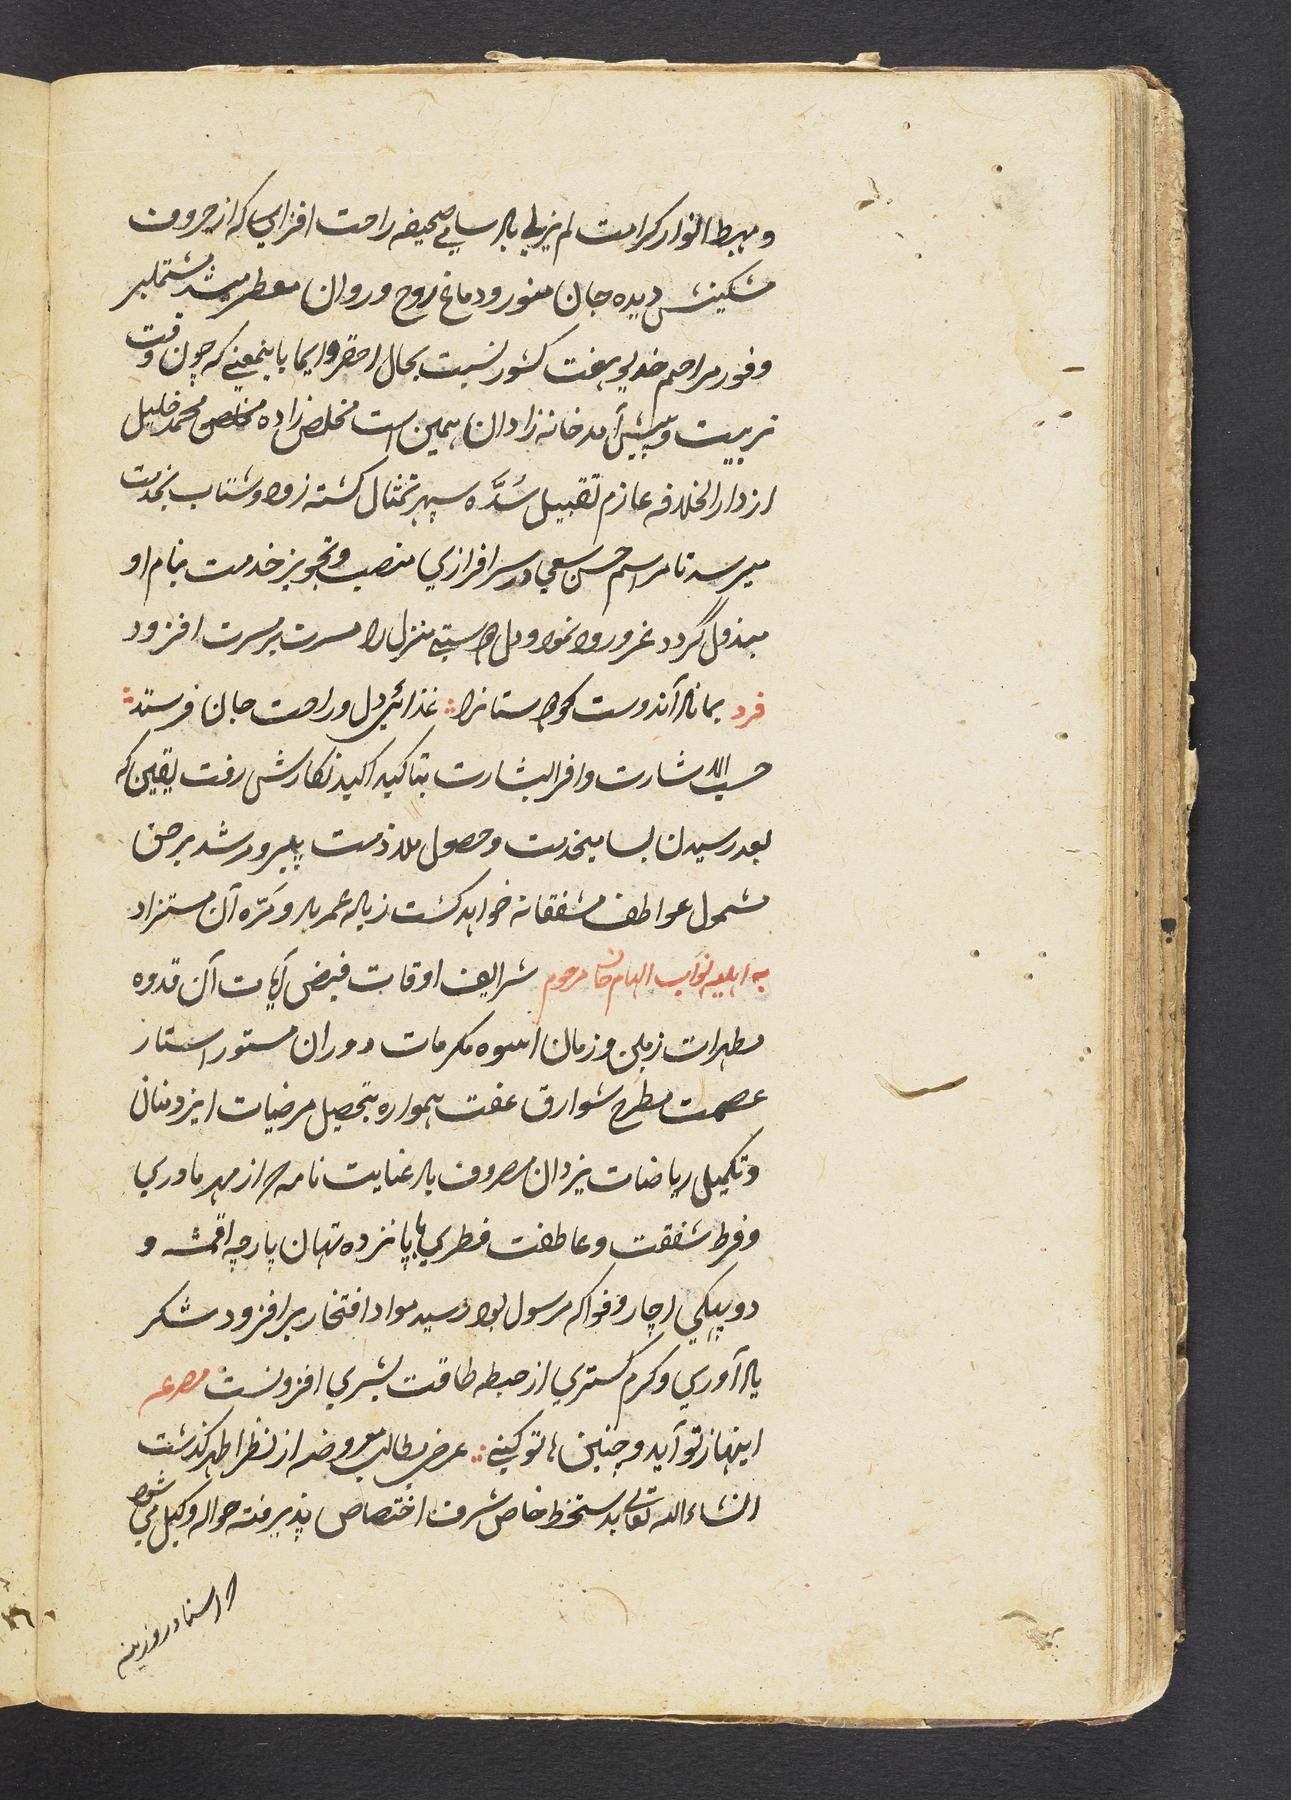 و مهبط انوار کرامت لم یزلی باد سامی صحیفه راحت افزای که از حروف
مشکینش دیده جان منور و دماغ روح و روان معطر میشد مشتملبر
وفور مراحم خدیو هفت کشور نسبت بحال احقر و ایما باینمعنی که چون وقت
تربیت و پیش آمد خانه زادان همین است مخلص زاده مخلص محمد خلیل
از دار الخلافه عازم تقبیل سُدَّه سپهر تمثال کشته زود و شتاب بخدمت
میرسد تا مراسم حسن سعی در سرافرازی منصب و تجویز خدمت بنام او
مبذول گردد غرور ورود نمود و دل منزل را مسرت بر مسرت افزود
فرد بماناد آندوست کو دوستانرا غذای دل و راحت جان فرستد
حسب الاشارت وافر البشارت بتاکید اکید نکارش رفت یقین که
بعد رسیدن بسامیخدمت و حصول ملازمت پیر و مرشد برحق
مشمول عواطف مشفقانه خواهد کشت زیاده عمر باد و مَرَّه آن مستزاد
به اهلیه نواب الهام خان مرحوم شرایف اوقات فیض آیات آن قدوه
مطهرات زمین و زمان اسوه مکرمات دوران مستور استار
عصمت مطرح شوارق عفت همواره بتحصیل مرضیات ایزد منان
و تکمیل ریاضات یزدان مصروف باد عنایت نامه که از مهر مادری
و فرط شفقت و عاطفت فطری با پانزده تهان پارچه اقمشه و
دو بهنگی اچار و فواکه مرسول بود رسید مواد افتخار برافزود شکر
یاد آوری و کرم گستری از حیطه طاقت بشری افزونست مصرعه
اینها ز تو آید و چنین ها تو کنی عرض مطالب معروضه از نظر اطهر کذشت
انشاء الله تعالی بدستخط خاص شرف اختصاص پذیرفته حواله وکیل می شود